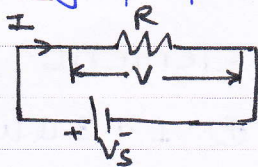 I R
V
+ -
Vs